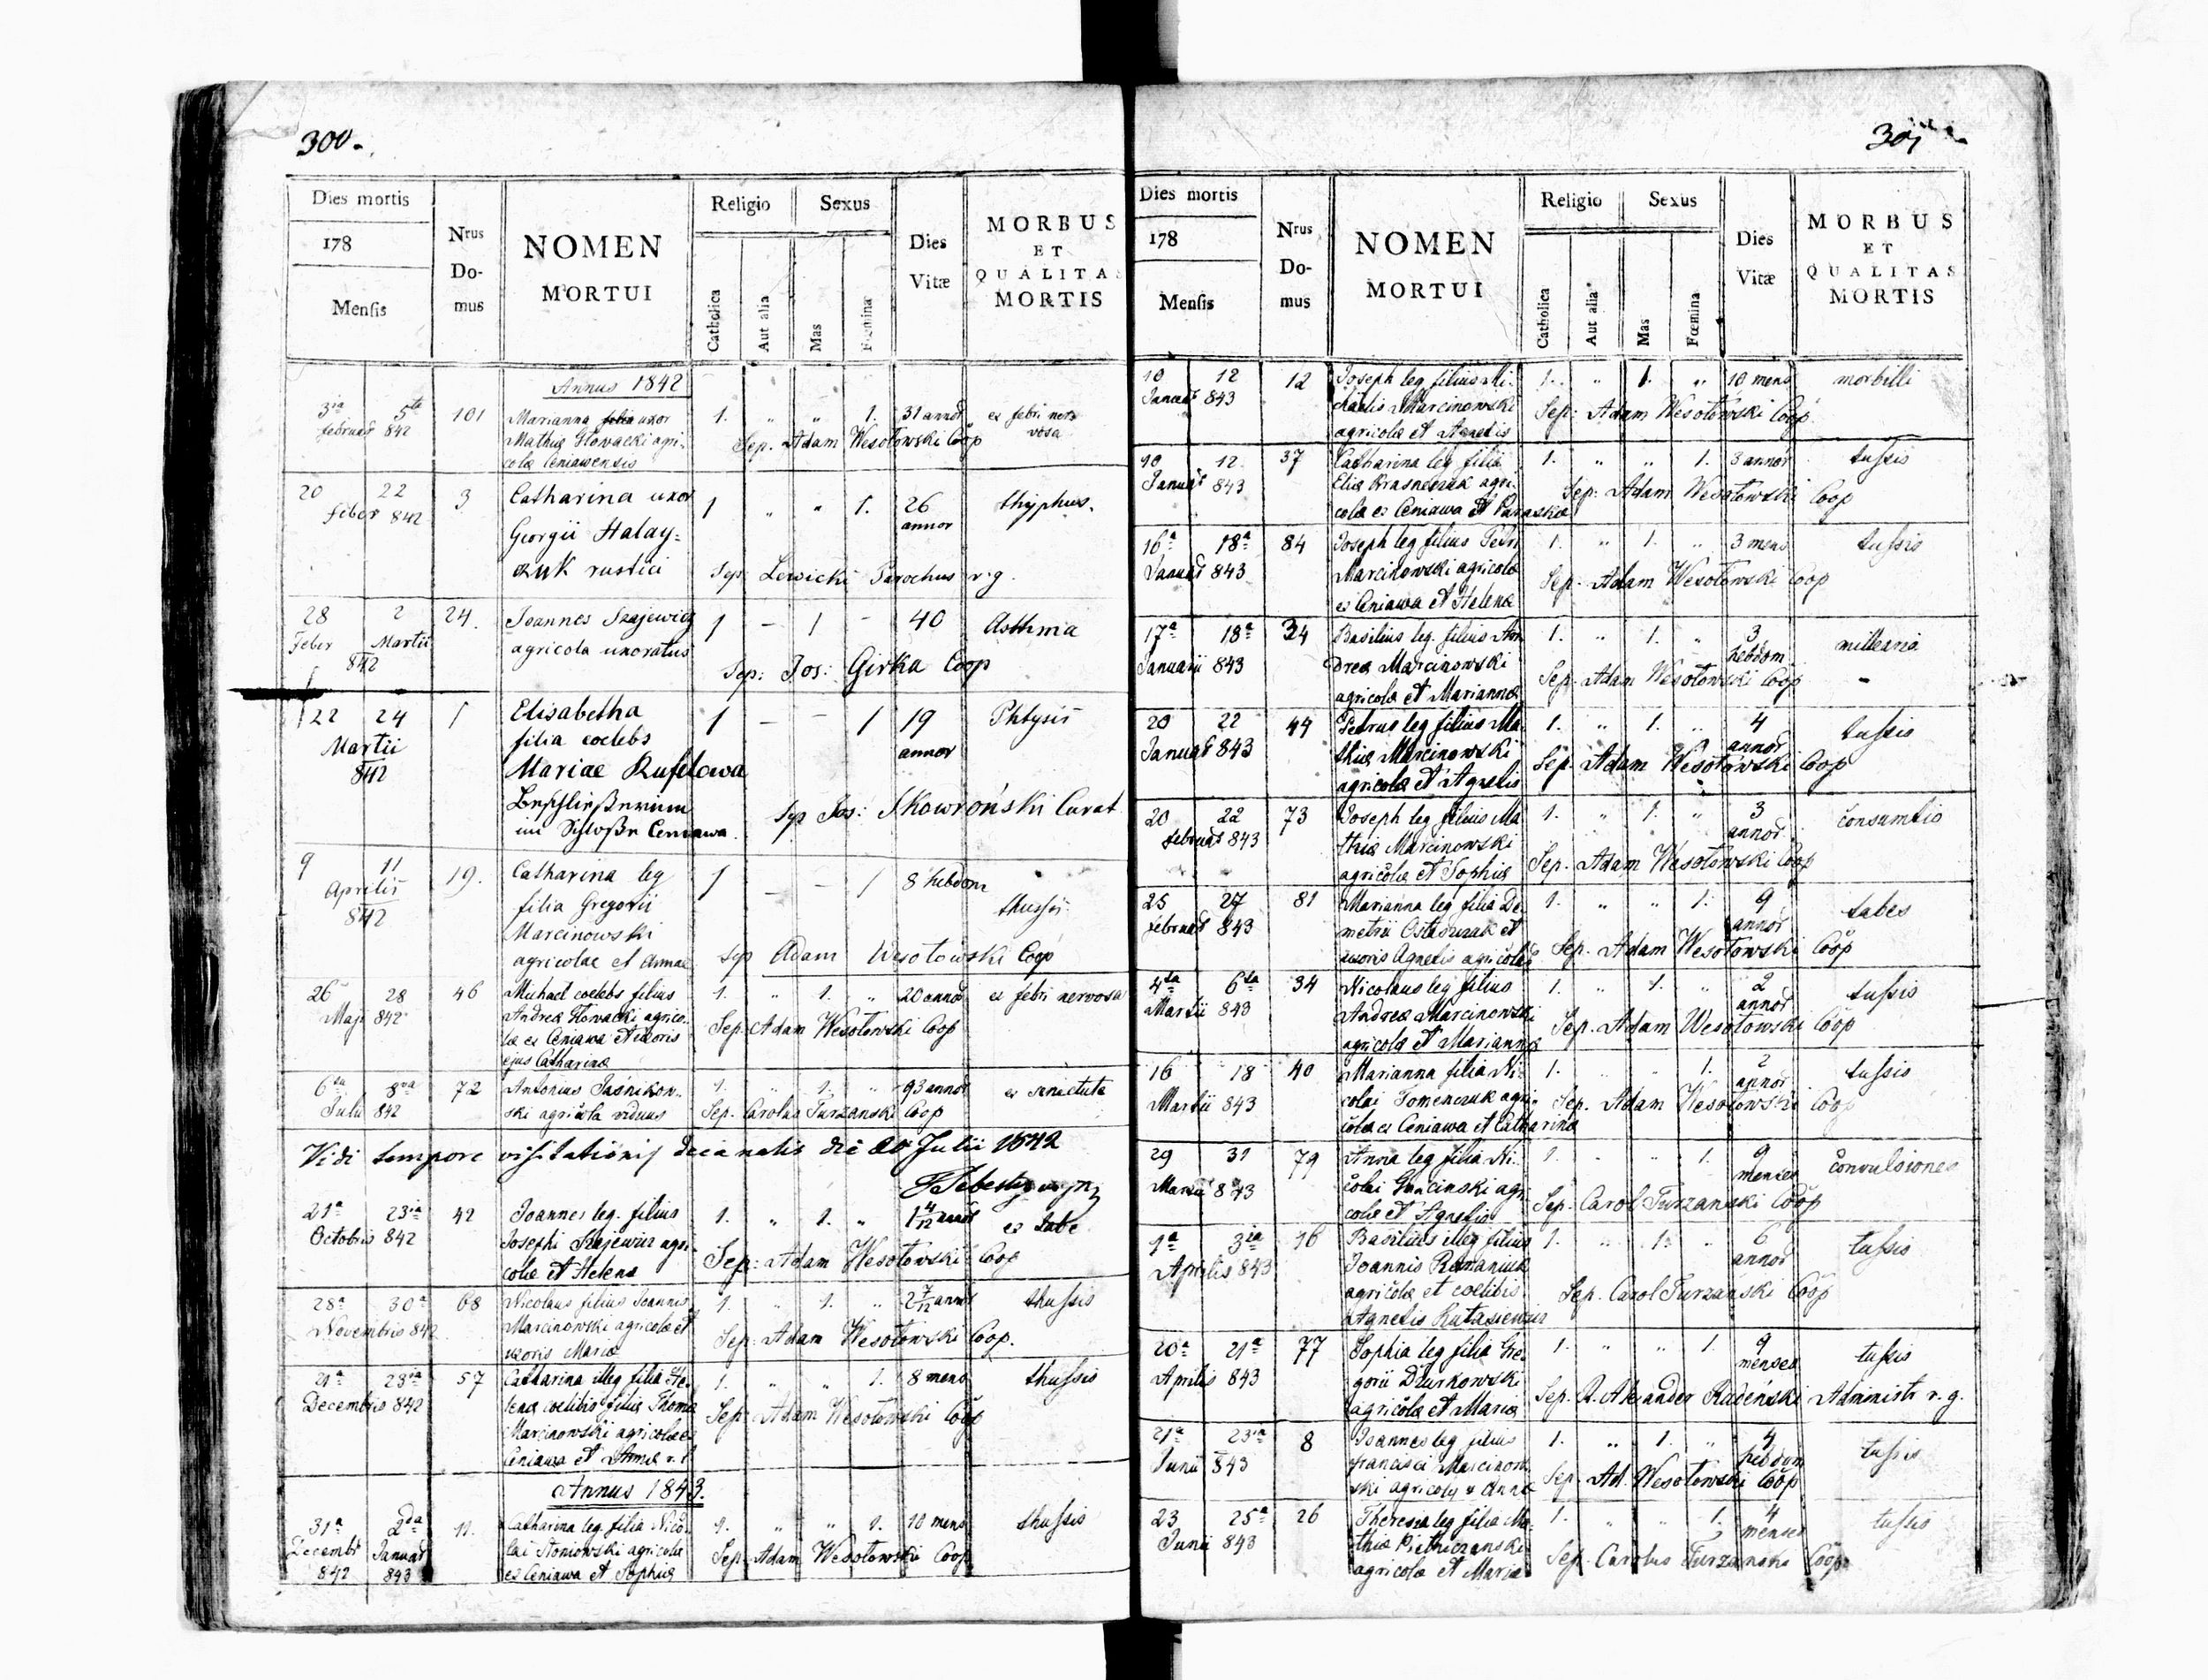 300.
Dies mortis
178
Mensis
Nrus
Do-
mus
NOMEN
MORTUI
Religio
Catholica
Aut alia
Sexus
Mas
Fœmina
Dies
Vitæ
MORBUS
ET
QUALITAS
MORTIS
Annus 1842
3ia 5ta 101 Marianna filia uxor 1. " " 1. 31 annor ex febri ner-
Februar 842 Mathiæ Głowacki agri- Sep. Adam Wesołowski Coop vosa
colæ Ceniawensis
20 22 3 Catharina uxor 1 " " 1. 26 thyphus.
feber 842 annor
Georgii Halay-
czuk rustici Sep. Lewicki Parochus r. g.
28 2 24. Joannes Szajewicz 1 – 1 – 40 Asthma
Feber Martii agricola uxoratus
842 Sep: Jos: Girka Coop
22 24 1 Elisabetha 1 – – 1 19 Phtysis
Martii filia coelebs annor
842 Mariae Rufelowa
Beschließerinn Sep Jos: Skowroński Curat
im Schloße Ceniawa.
9 11 19. Catharina leg 1 – – 1 8 hebdom
Aprilis filia Gregorii thussis
842 Marcinowski
agricolae et Annae Sep Adam Wesołowski Coop
26 28 46 Michael coelebs filius 1. " 1. " 20 annor ex febri nervosa
Maji 842 Andreæ Głowacki agrico- Sep. Adam Wesołowski Coop
læ ex Ceniawa et uxoris
ejus Catharinæ
6ta 8va 72 Antonius Jaśnikow- 1. " 1. " 93 annor ex senectute
Julii 842 ski agricola viduus Sep. Carolus Turzanski Coop
Vidi tempore visitationis decanalis die 20 Julii 1842
21a 23ia 42 Joannes leg. filius 1. " 1. " 1 4/12 annor ex tabe
Octobris 842 Josephi Szajewicz agri- Sep: Adam Wesołowski Coop
colæ et Helenæ
28a 30a 68 Nicolaus filius Joannis 1. " 1. " 2 7/12 annor thussis
Novembris 842 Marcinowski agricolæ et Sep. Adam Wesołowski Coop.
uxoris Mariæ
21a 23ia 57 Catharina illeg filia He- 1. " " 1. 8 mens thussis
Decembris 842 lenæ coelibis filiæ Thomæ Sep. Adam Wesołowski Coop
Marcinowski agricolæ ex
Ceniawa et Annæ r. l.
Annus 1843.
31a 2da 11. Catharina leg. filia Nico- 1. " " 1. 10 mens thussis
Decembr Januar lai Słoniowski agricolæ Sep. Adam Wesołowski Coop
842 843 ex Ceniawa et Sophiæ
301
Dies mortis
178
Mensis
Nrus
Do-
mus
NOMEN
MORTUI
Religio
Catholica
Aut alia
Sexus
Mas
Fœmina
Dies
Vitæ
MORBUS
ET
QUALITAS
MORTIS
10 12 12 Joseph leg filius Mi- 1. " 1. " 10 mens morbilli
Januar 843 chaelis Marcinowski Sep: Adam Wesołowski Coop
agricolæ et Agnetis
10 12. 37 Catharina leg filia 1. " " 1. 3 annor tussis
Januar 843 Eliæ Krasneczuk agri- Sep: Adam Wesołowski Coop
colæ ex Ceniawa et Paraskæ
16a 18a 84 Joseph leg filius Petri 1. " 1. " 3 mens tussis
Januar 843 Marcinowski agricolæ Sep. Adam Wesołowski Coop
ex Ceniawa et Helenæ
17a 18a 34 Basilius leg. filius An- 1. " 1. " 3 millearia
Januarii 843 dreæ Marcinowski hebdom
agricolæ et Mariannæ Sep. Adam Wesołowski Coop
20 22 44 Petrus leg filius Ma- 1. " 1. " 4 tussis
Januar 843 thiæ Marcinowski annor
agricolæ et Agnetis Sep. Adam Wesołowski Coop
20 22 73 Joseph leg filius Ma- 1. " 1. " 3 consumtio
februar 843 thiæ Marcinowski annor
agricolæ et Sophiæ Sep. Adam Wesołowski Coop
25 27 81 Marianna leg filia De- 1. " " 1. 9 tabes
februar 843 metrii Ostaszuk et annor
uxoris Agnetis agricolæ Sep. Adam Wesołowski Coop
4ta 6ta 34 Nicolaus leg filius 1. " 1. " 2 tussis
Martii 843 Andreæ Marcinowski annor
agricolæ et Mariannæ Sep. Adam Wesołowski Coop
16 18 40 Marianna filia Ni- 1. " " 1. 2 tussis
Martii 843 colai Tomenczuk agri- annor
colæ ex Ceniawa et Catharinæ Sep. Adam Wesołowski Coop
29 31 79 Anna leg filia Ni- 1. " " 1. 9 convulsiones
Martii 843 colai agri- menses
colæ et Agnetis Sep. Carol Turzanski Coop
1a 3ia 16 Basilius illeg filius 1. " 1. " 6 tussis
Aprilis 843 Joannis Romaniuk annor
agricolæ et coelibis Sep. Carol Turzański Coop
Agnetis Rutasiewicz
20a 21a 77 Sophia leg filia Gre- 1. " " 1. 9 tussis
Aprilis 843 gorii Dziurkowski menses
agricolæ et Mariæ Sep. R. Alexander Radeński Administr r. g.
21a 23ia 8 Joannes leg filius 1. " 1. " 4 tussis
Junii 843 Francisci Marcinow- hebdom
ski agricolæ et Annæ Sep. Ad. Wesołowski Coop
23 25a 26 Theresia leg filia Ma- 1. " " 1. 4 tussis
Junii 843 thiæ Piethiczanski menses
agricolæ et Mariæ Sep. Carolus Turzanski Coop